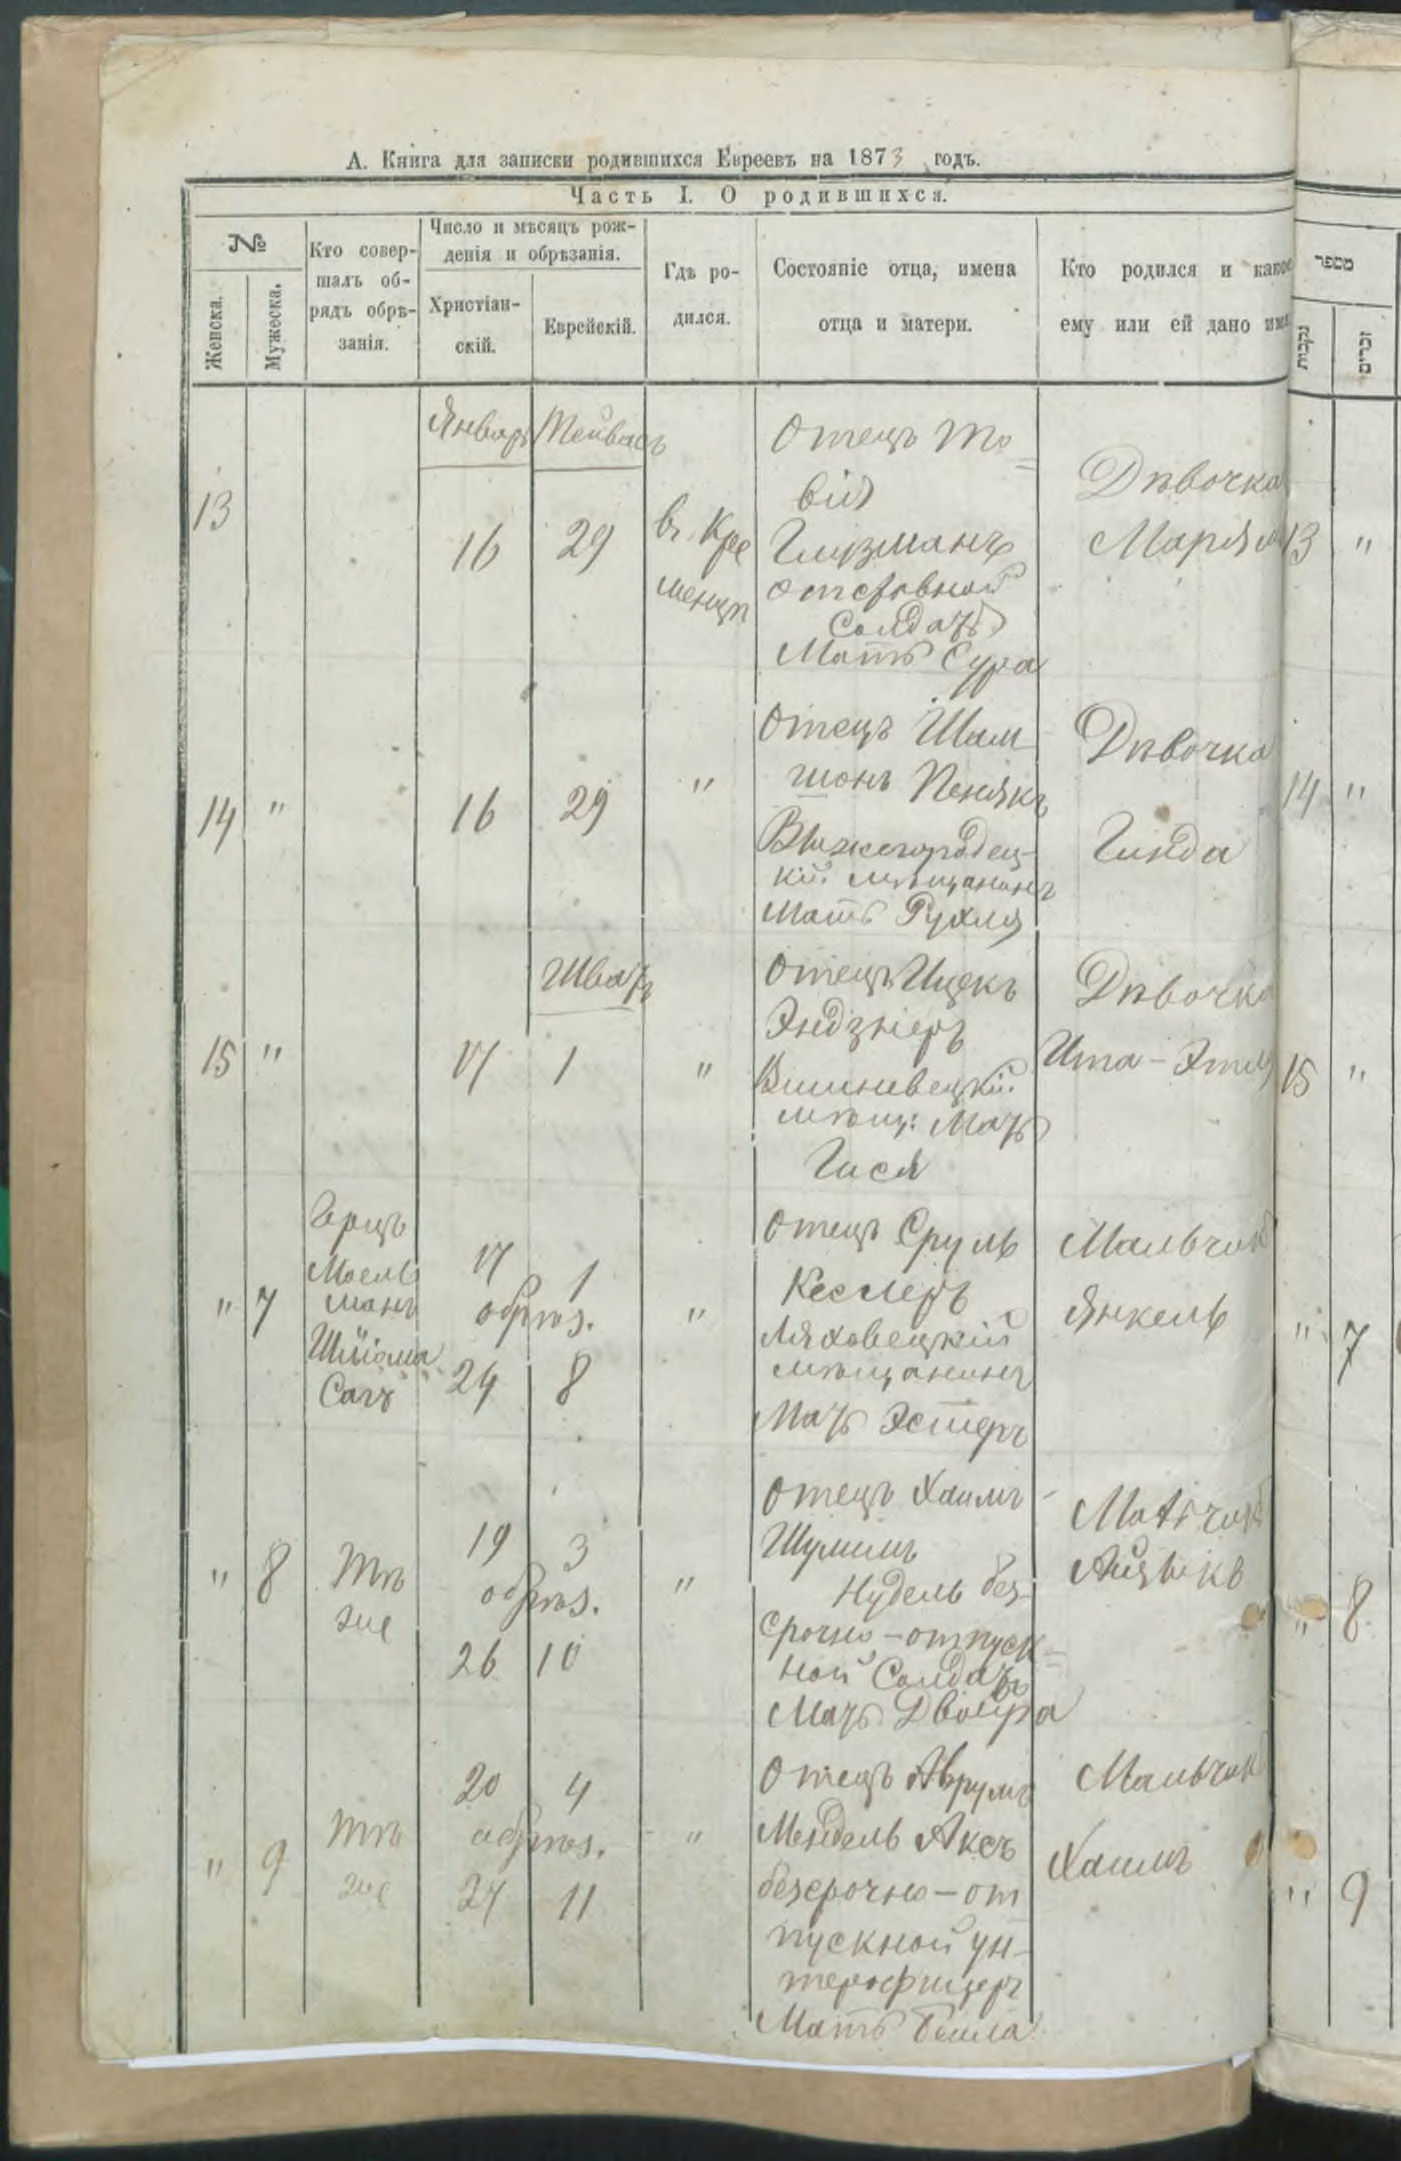 А. Книга для записки родившихся Евреевъ на 1873 годъ.
Часть I. О родившихся.
№
Женска.
Мужеска.
Кто совер-
шалъ об-
рядъ обрѣ-
занія.
Число и мѣсяцъ рож-
денія и обрѣзанія.
Христіан-
скій.
Еврейскій.
Гдѣ ро-
дился.
Состояніе отца, имена
отца и матери.
Кто родился и какое
ему или ей дано имя
מספר
נקבות
זכרים
Январь Тейвасъ
13
16 29
въ Кре
менцѣ
Отецъ То=
вія
Глузманъ
отставной
Солдатъ
Мать Сура
Дѣвочка
Марьям
13 "
14 "
16 29
"
Отецъ Шам-
шонъ Пенякъ
Вышегородец-
кій мѣщанинъ
Мать Рухля
Дѣвочка
Гинда
14 "
Шватъ
15 "
17 1
"
Отецъ Ицекъ
Эндзнеръ
Вишневецкій
мѣщ: Мать
Гися
Дѣвочка
Ита - Этля
15 "
" 7
Герцъ
Моель
манъ
Шліома
Сагъ
17 1
обрѣз.
24 8
"
Отецъ Сруль
Кеслеръ
Ляховецкій
мѣщанинъ
Мать Эстеръ
Мальчик
Янкель
" 7
" 8
Тѣ
же
19 3
обрѣз.
26 10
"
Отецъ Хаимъ -
Шулимъ
Нудель без-
срочно - отпуск=
ной Солдатъ
Мать Двойра
Мальчик
Айзыкъ
" 8
" 9
Тѣ
же
20 4
обрѣз.
27 11
"
Отецъ Аврумъ
Мендель Аксъ
безсрочно - от
пускной ун-
терофицеръ
Мать Бейла
Мальчик
Хаимъ
" 9